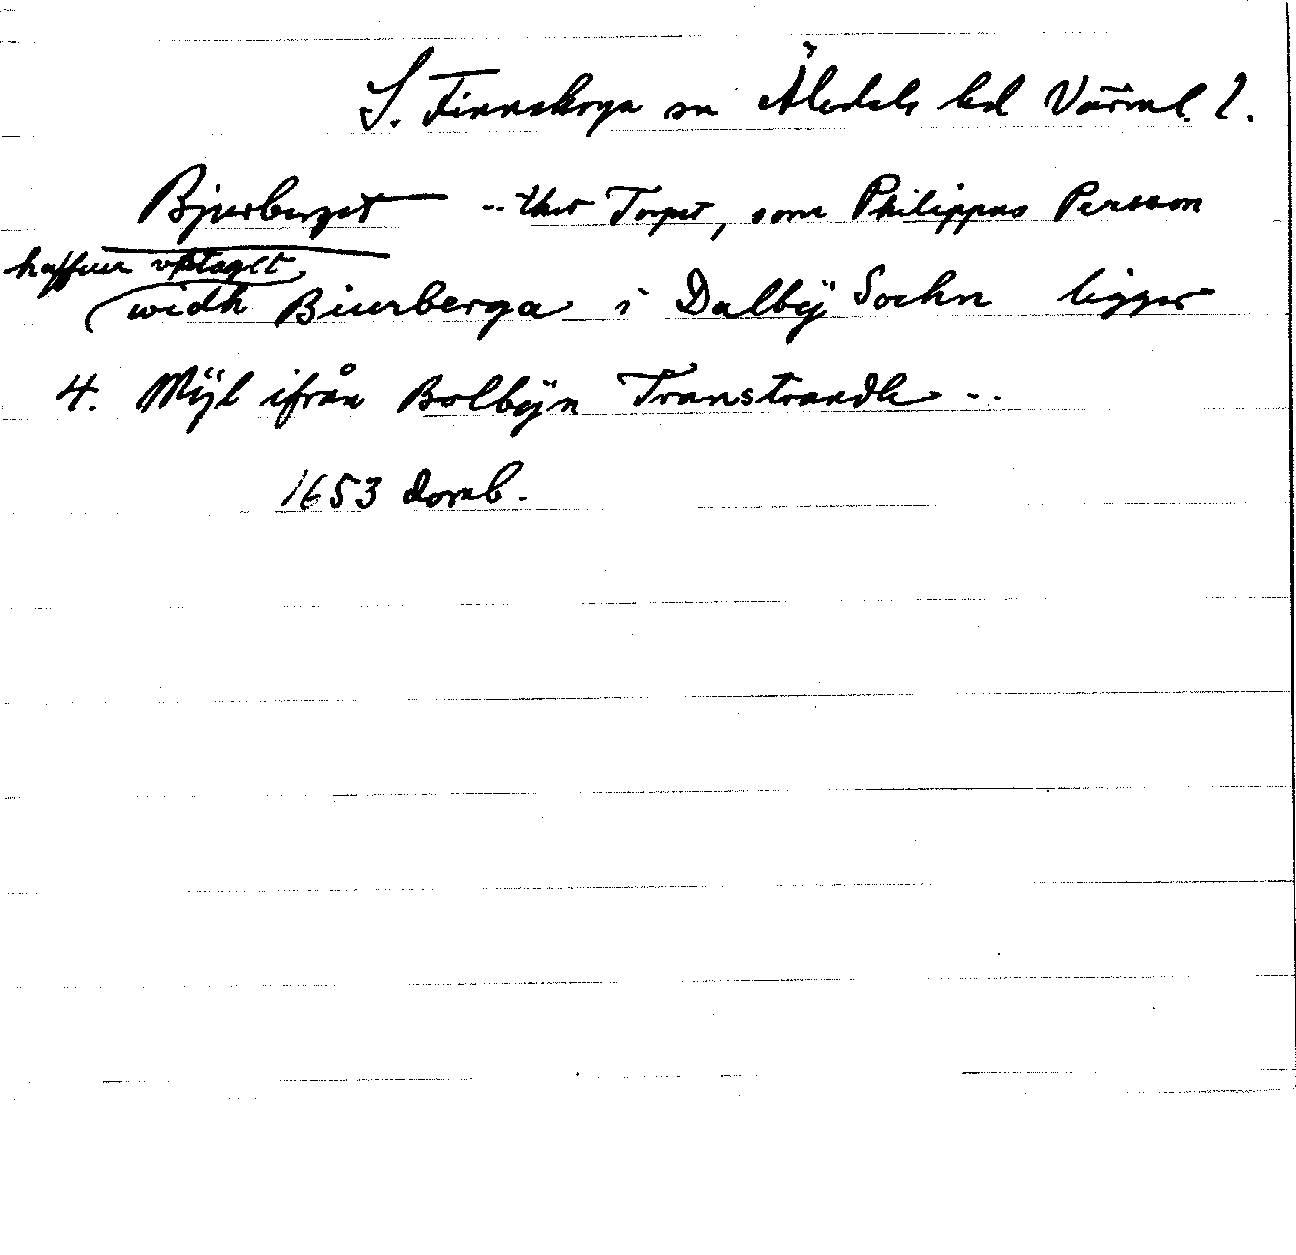 S. Finnskoga sn Älvdals hd Värml. l.
Bjurberget -- thet Torpet, som Philippus Persson
haffuer vptaget
widh Biurberga i Dalbÿ Sochn ligger
4. Mÿl ifrån Bolbÿn Transtrandh --
1653 domb.